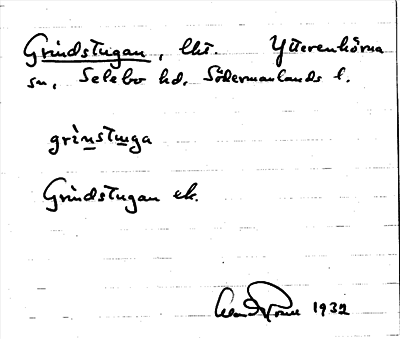 Grindstugan, lht. Ytterenhörna
sn, Selebo hd, Södermanlands l.
grinstuga
Grindstugan ek.
1932